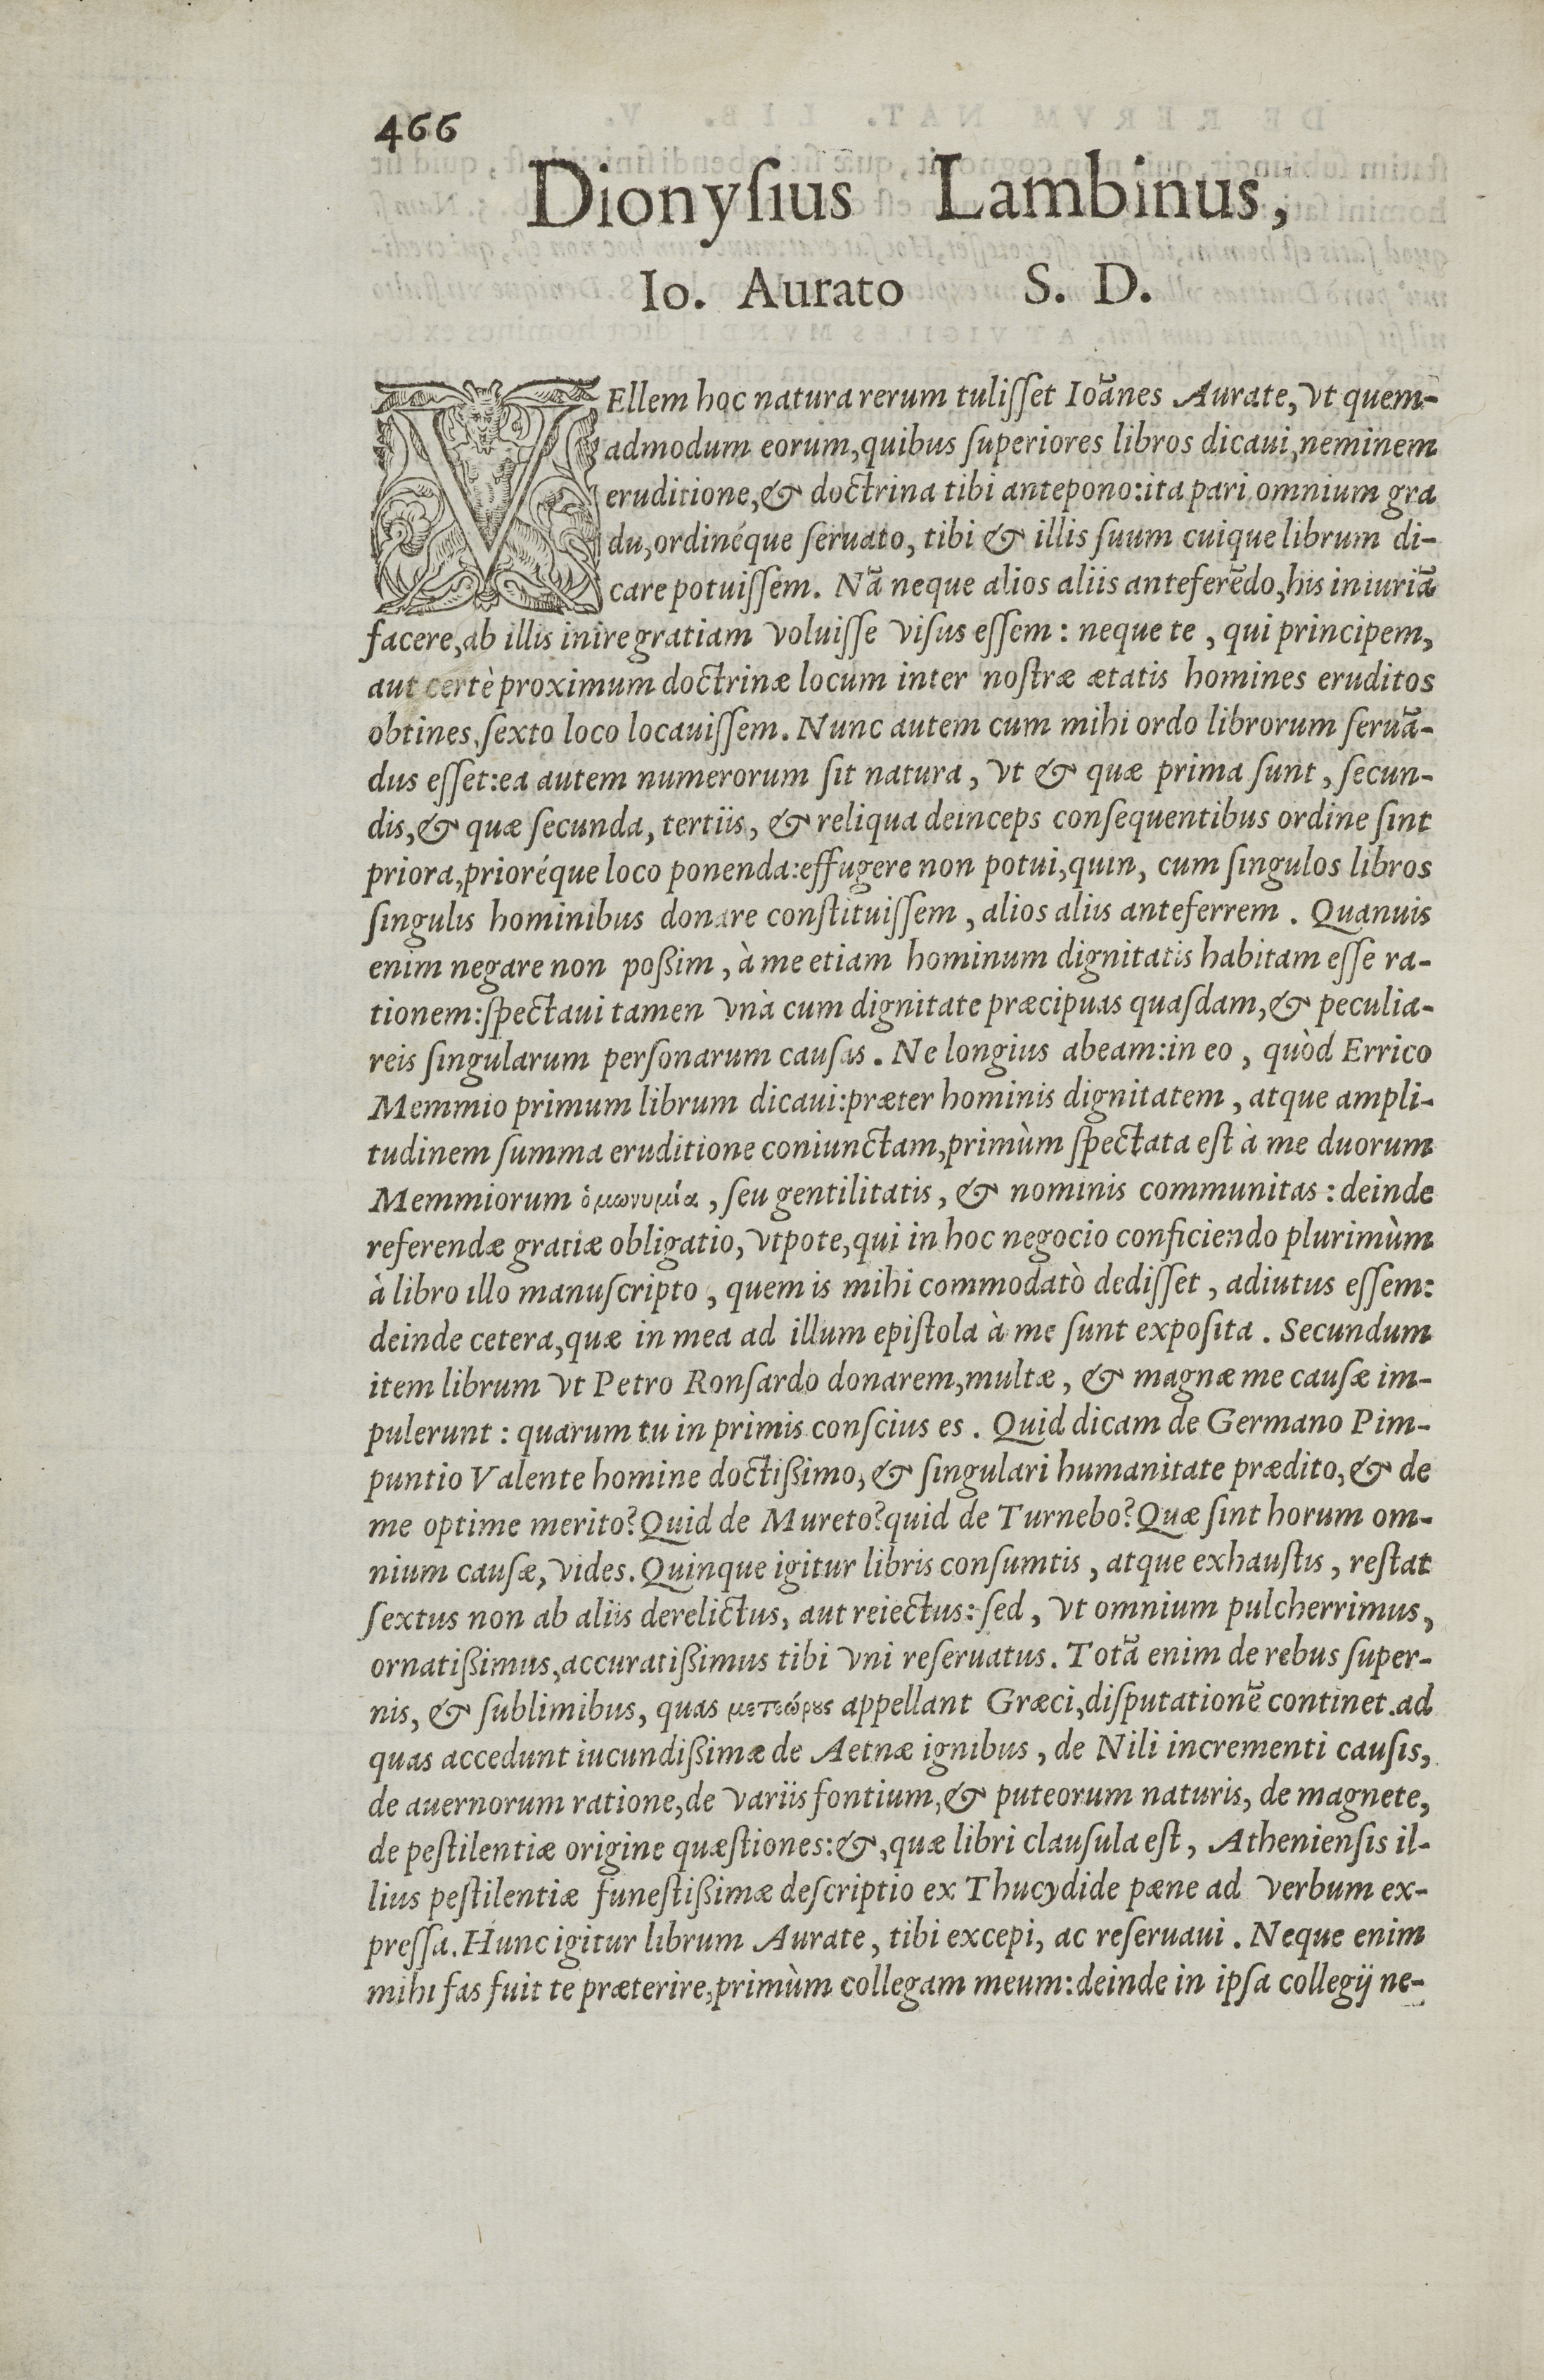 466
Dionyſius Lambinus,
Io. Aurato S. D.
VEllem hoc natura rerum tuliſſet Ioānes Aurate, vt quem-
admodum eorum, quibus ſuperiores libros dicaui, neminem
eruditione, & doctrina tibi antepono: ita pari omnium gra
du, ordinéque ſeruato, tibi & illis ſuum cuique librum di-
care potuiſſem. Nā neque alios aliis anteferēdo, his iniuriā
facere, ab illis inire gratiam voluiſſe viſus eſſem: neque te, qui principem,
aut certè proximum doctrinæ locum inter noſtræ ætatis homines eruditos
obtines, ſexto loco locauiſſem. Nunc autem cum mihi ordo librorum ſeruā-
dus eſſet: ea autem numerorum ſit natura, vt & quæ prima ſunt, ſecun-
dis, & quæ ſecunda, tertiis, & reliqua deinceps conſequentibus ordine ſint
priora, prioréque loco ponenda: effugere non potui, quin, cum ſingulos libros
ſingulis hominibus donare conſtituiſſem, alios aliis anteferrem. Quanuis
enim negare non poßim, à me etiam hominum dignitatis habitam eſſe ra-
tionem: ſpectaui tamen vnà cum dignitate præcipuas quaſdam, & peculia-
reis ſingularum perſonarum cauſas. Ne longius abeam: in eo, quòd Errico
Memmio primum librum dicaui: præter hominis dignitatem, atque ampli-
tudinem ſumma eruditione coniunctam, primùm ſpectata eſt à me duorum
Memmiorum ὁμωνυμία, ſeu gentilitatis, & nominis communitas: deinde
referendæ gratiæ obligatio, vtpote, qui in hoc negocio conficiendo plurimùm
à libro illo manuſcripto, quem is mihi commodatò dediſſet, adiutus eſſem:
deinde cetera, quæ in mea ad illum epiſtola à me ſunt expoſita. Secundum
item librum vt Petro Ronſardo donarem, multæ, & magnæ me cauſæ im-
pulerunt: quarum tu in primis conſcius es. Quid dicam de Germano Pim-
puntio Valente homine doctißimo, & ſingulari humanitate prædito, & de
me optime merito? Quid de Mureto? quid de Turnebo? Quæ ſint horum om-
nium cauſæ, vides. Quinque igitur libris conſumtis, atque exhauſtis, reſtat
ſextus non ab aliis derelictus, aut reiectus: ſed, vt omnium pulcherrimus,
ornatißimus, accuratißimus tibi vni reſeruatus. Totā enim de rebus ſuper-
nis, & ſublimibus, quas μετεώρους appellant Græci, diſputationē continet. ad
quas accedunt iucundißimæ de Aetnæ ignibus, de Nili incrementi cauſis,
de auernorum ratione, de variis fontium, & puteorum naturis, de magnete,
de peſtilentiæ origine quæſtiones: &, quæ libri clauſula eſt, Athenienſis il-
lius peſtilentiæ funeſtißimæ deſcriptio ex Thucydide pæne ad verbum ex-
preſſa. Hunc igitur librum Aurate, tibi excepi, ac reſeruaui. Neque enim
mihi fas fuit te præterire, primùm collegam meum: deinde in ipſa collegij ne-